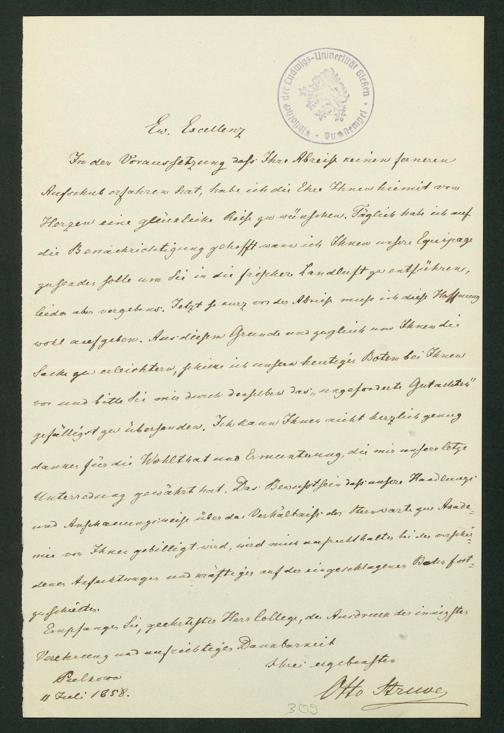 Bibliothek der Ludwigs-Universität Gießen
Ew. Excellenz
In der Voraussetzung daß Ihre Abreise keinen ferneren
Aufschub erfahren hat, habe ich die Ehre Ihnen hiemit von
Herzen eine glückliche Reise zu wünschen. Täglich habe ich auf
die Benachrichtigung gehofft wann ich Ihnen unsre Equipage
zusenden solle um Sie in die frische Landluft zu entführen,
leider aber vergebens. Jetzt so kurz vor der Abreise muß ich diese Hoffnung
wohl aufgeben. Aus diesem Grunde und zugleich um Ihnen die
Sache zu erleichtern, schicke ich unsern heutigen Boten bei Ihnen
vor und bitte Sie mir durch denselben das "ungeforderte Gutachten"
gefälligst zu übersenden. Ich kann Ihnen nicht herzlich genug
danken für die Wohlthat und Ermunterung die mir unsere letzte
Unterredung gewährt hat. Das Bewußtsein daß unsere Handlungs
und Anschauungsweise über das Verhältniß der Sternwarte zur Akade-
mie von Ihnen gebilligt wird, wird mich aufrecht halten bei den verschie-
denen Anfechtungen und kräftiger auf der eingeschlagenen Bahn fort-
zuschreiten.
Empfangen Sie, geehrtester Herr College, den Ausdruck der innigsten
Verehrung und aufrichtigen Dankbarkeit
Ihres ergebensten
Pulkowa
11 Juli 1858.
Otto Struve
309